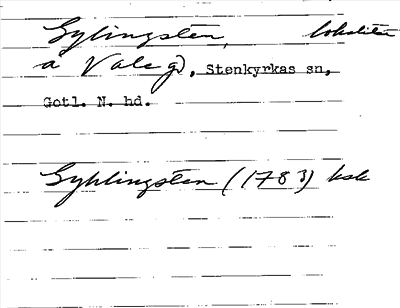 Gylingsten, lokalitet
å Vale gd, Stenkyrkas sn,
Gotl. N. hd.
Gyhlingsten (1783) ksk